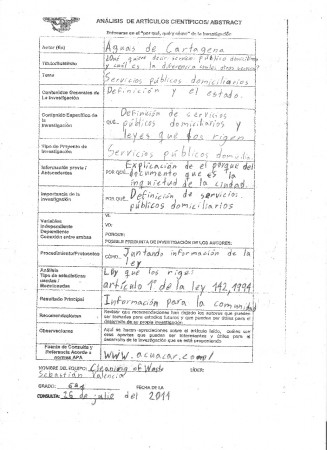 ANÁLISIS DE ARTÍCULOS CIENTÍFICOS/ ABSTRACT
Enfocarse en el "por qué, qué y cómo" de la investigación
Autor (Es) Aguas de Cartagena
Título/Subtítulo ¿Qué quiere decir servicio público domiciliario y cuál es la diferencia entre otros servicios?
Tema Servicios públicos domiciliarios
Contenidos Generales de La Investigación Definición y el estado.
Contenido Específico de la Investigación QUE Definición de servicios públicos domiciliarios y leyes que los rigen
Tipo de Proyecto de Investigación Servicios públicos domicilia
Información previa / Antecedentes POR QUE Explicación de el porque del documento que es la inquietud de la ciudad.
Importancia de la Investigación POR QUE Definición de servicios públicos domiciliarios
Variables
Independiente
Dependiente
Conexión entre ambas
VI:
VD:
PORQUE:
POSIBLE PREGUNTA DE INVESTIGACIÓN DE LOS AUTORES:
Procedimiento/Protocolos CÓMO Juntando información de la ley
Análisis
Tipo de estadísticas usadas / Matrizados
Ley que los rige: artículo 1° de la ley 142, 1994
Resultado Principal Información para la comunidad
Recomendaciones Revisar qué recomendaciones han dejado los autores que pueden ser tomadas para estudios futuros y que pueden ser útiles para el desarrollo de su propia investigación.
Observaciones Aquí se hacen apreciaciones sobre el artículo leído, qué son esos aportes que pueden ser interesantes y útiles para el desarrollo de la investigación que se está proponiendo
Fuente de Consulta y Referencia Acorde a normas APA www.acuacar.com/
NOMBRE DEL EQUIPO: Cleaning of Waste LÍDER:
Sebastián Valencia
GRADO: FECHA DE LA
CONSULTA: 26 de julio del 2011